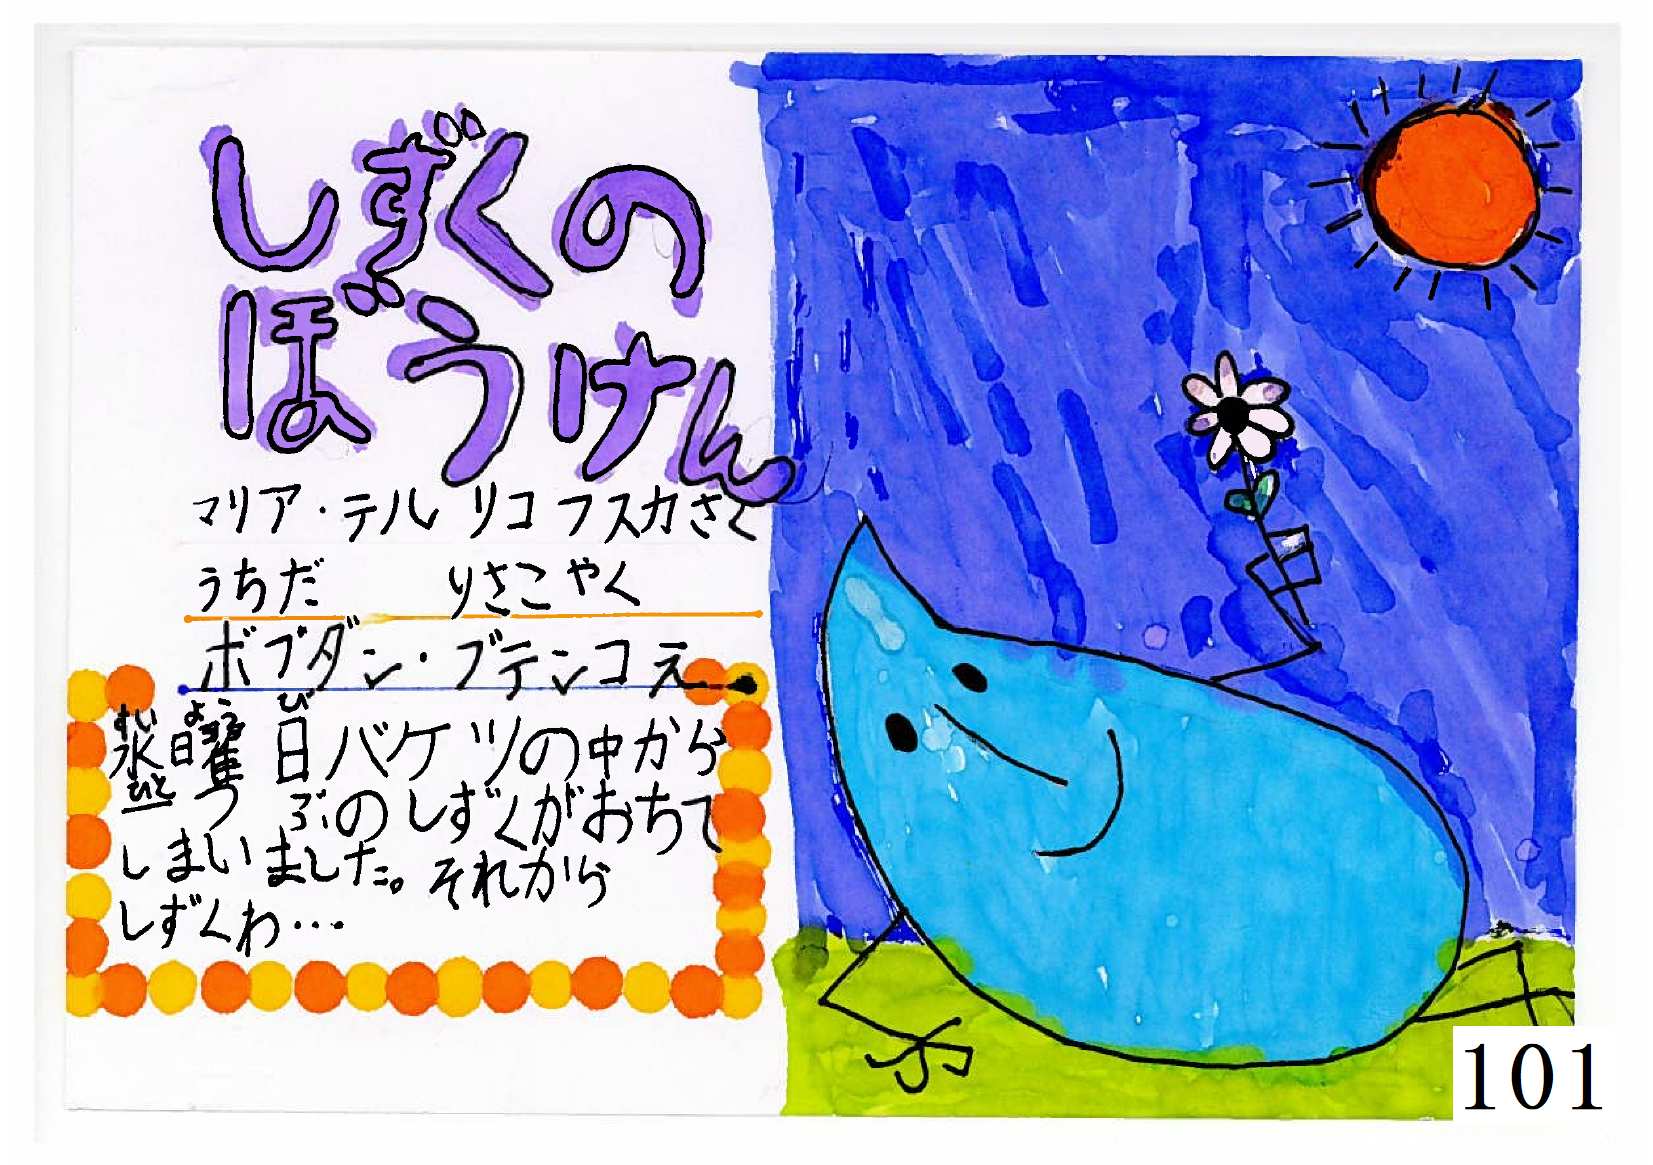 しずくの
ぼうけん
マリア・テルリコフスカさく
うちだ りさこ やく
ボブダン・ブテンコえ
水曜日バケツの中から
一つぶのしずくがおちて
しまいました。それから
しずくわ…
すい よう び
ひと
101